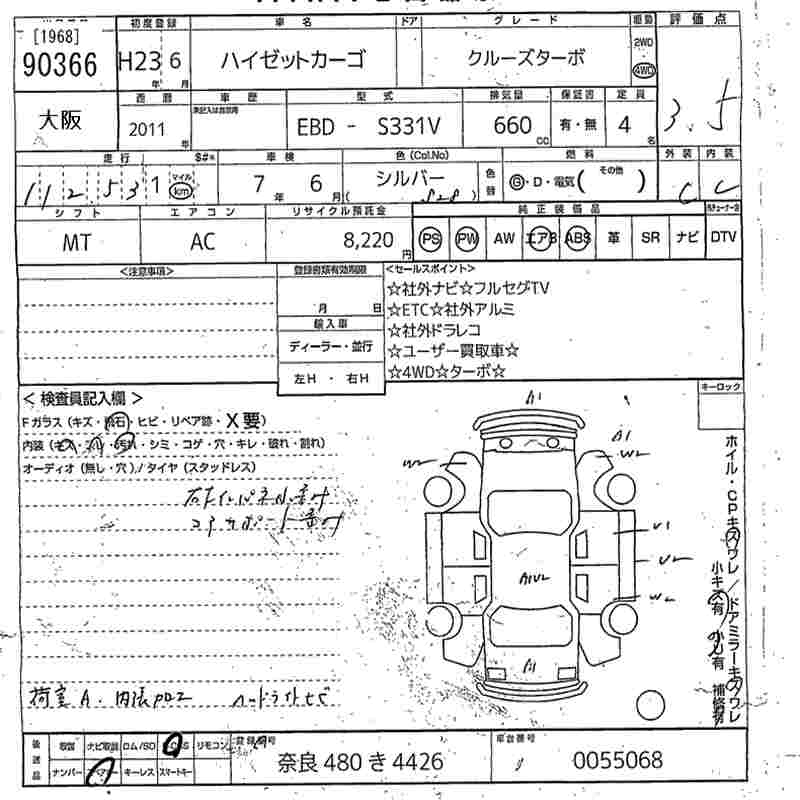 初度登録 車名 ドア グレード 駆動 評価点
[1968]
90366 H23 6 ハイゼットカーゴ クルーズターボ 2WD 4WD
年 月
大阪 西暦 車歴 型式 排気量 保証書 定員 3.5
2011 EBD - S331V 660 有・無 4
年 CC 名
走行 S#* 車検 色(Col.No) 燃料 外装 内装
112,531 マイル km 7 6 シルバー 色替 G・D・電気( その他 ) C C
年 月 ( S28 )
シフト エアコン リサイクル預託金 純正装備品
MT AC 8,220 PS PW AW エアB ABS 革 SR ナビ DTV
円
<注意事項> 登録書類有効期限 <セールスポイント>
☆社外ナビ☆フルセグTV
月 日 ☆ETC☆社外アルミ
輸入車 ☆社外ドラレコ
ディーラー・並行 ☆ユーザー買取車☆
左H ・ 右H ☆4WD☆ターボ☆
キーロック
< 検査員記入欄 >
Fガラス (キズ・飛石・ヒビ・リペア跡・X要)
内装 (キズ・スレ・汚れ・シミ・コゲ・穴・キレ・破れ・割れ)
オーディオ (無し・穴) / タイヤ (スタッドレス)
A1
A1
W2 W2
U1
U2
A1U2
W2
A1
ホイル・CPキズワレ/ドアミラーキズワレ
小キズ有/小凹有 補修有
荷室A.内張 ヘッドライトヒビ
後送品 取説 ナビ取説 ロム/SD ETCS リモコン 登録番号 車台番号
ナンバー スペアキー キーレス スマートキー 奈良 480 き 4426 0055068